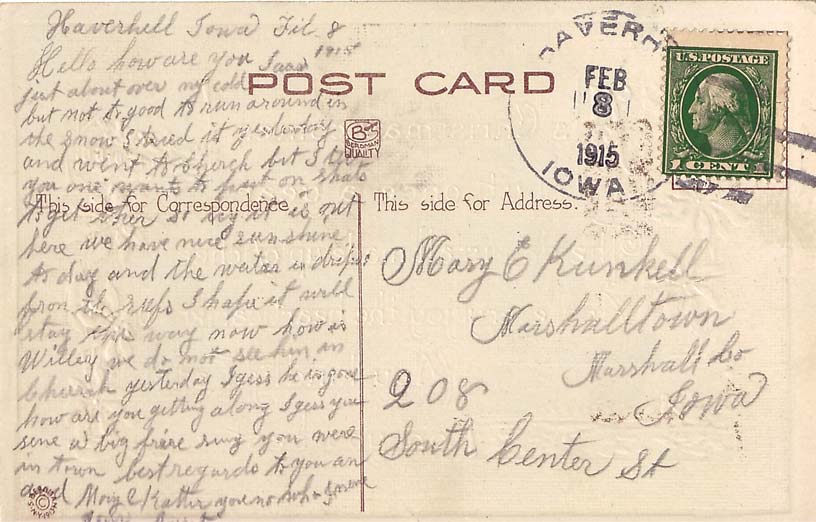 Haverhill Iowa Feb 8
1915
Hello how are you I am
just about over my cold
but not to good to run around in
the snow I tried it yesterday
and went to church but I tell
you one want to put on shals
to get ther so day it is out
here we have nice sunshine
to day and the water is drips
from the rufs I hape it will
stay this way now how is
Willey we do not see him in
Cherch yesterday I gess he is gone
how are you getting along I gess you
sene a big fire sing you were
in town best regards to you an
and Mary E Katter you no who I mene
POST CARD
B
BERGMAN
QUALITY
This side for Correspondence.
This side for Address.
HAVERH
FEB
8
1915
IOWA
U.S. POSTAGE
1 CENT 1
Mary E Kunkell
Marshalltown
Marshall Co
Iowa
208
South Center St